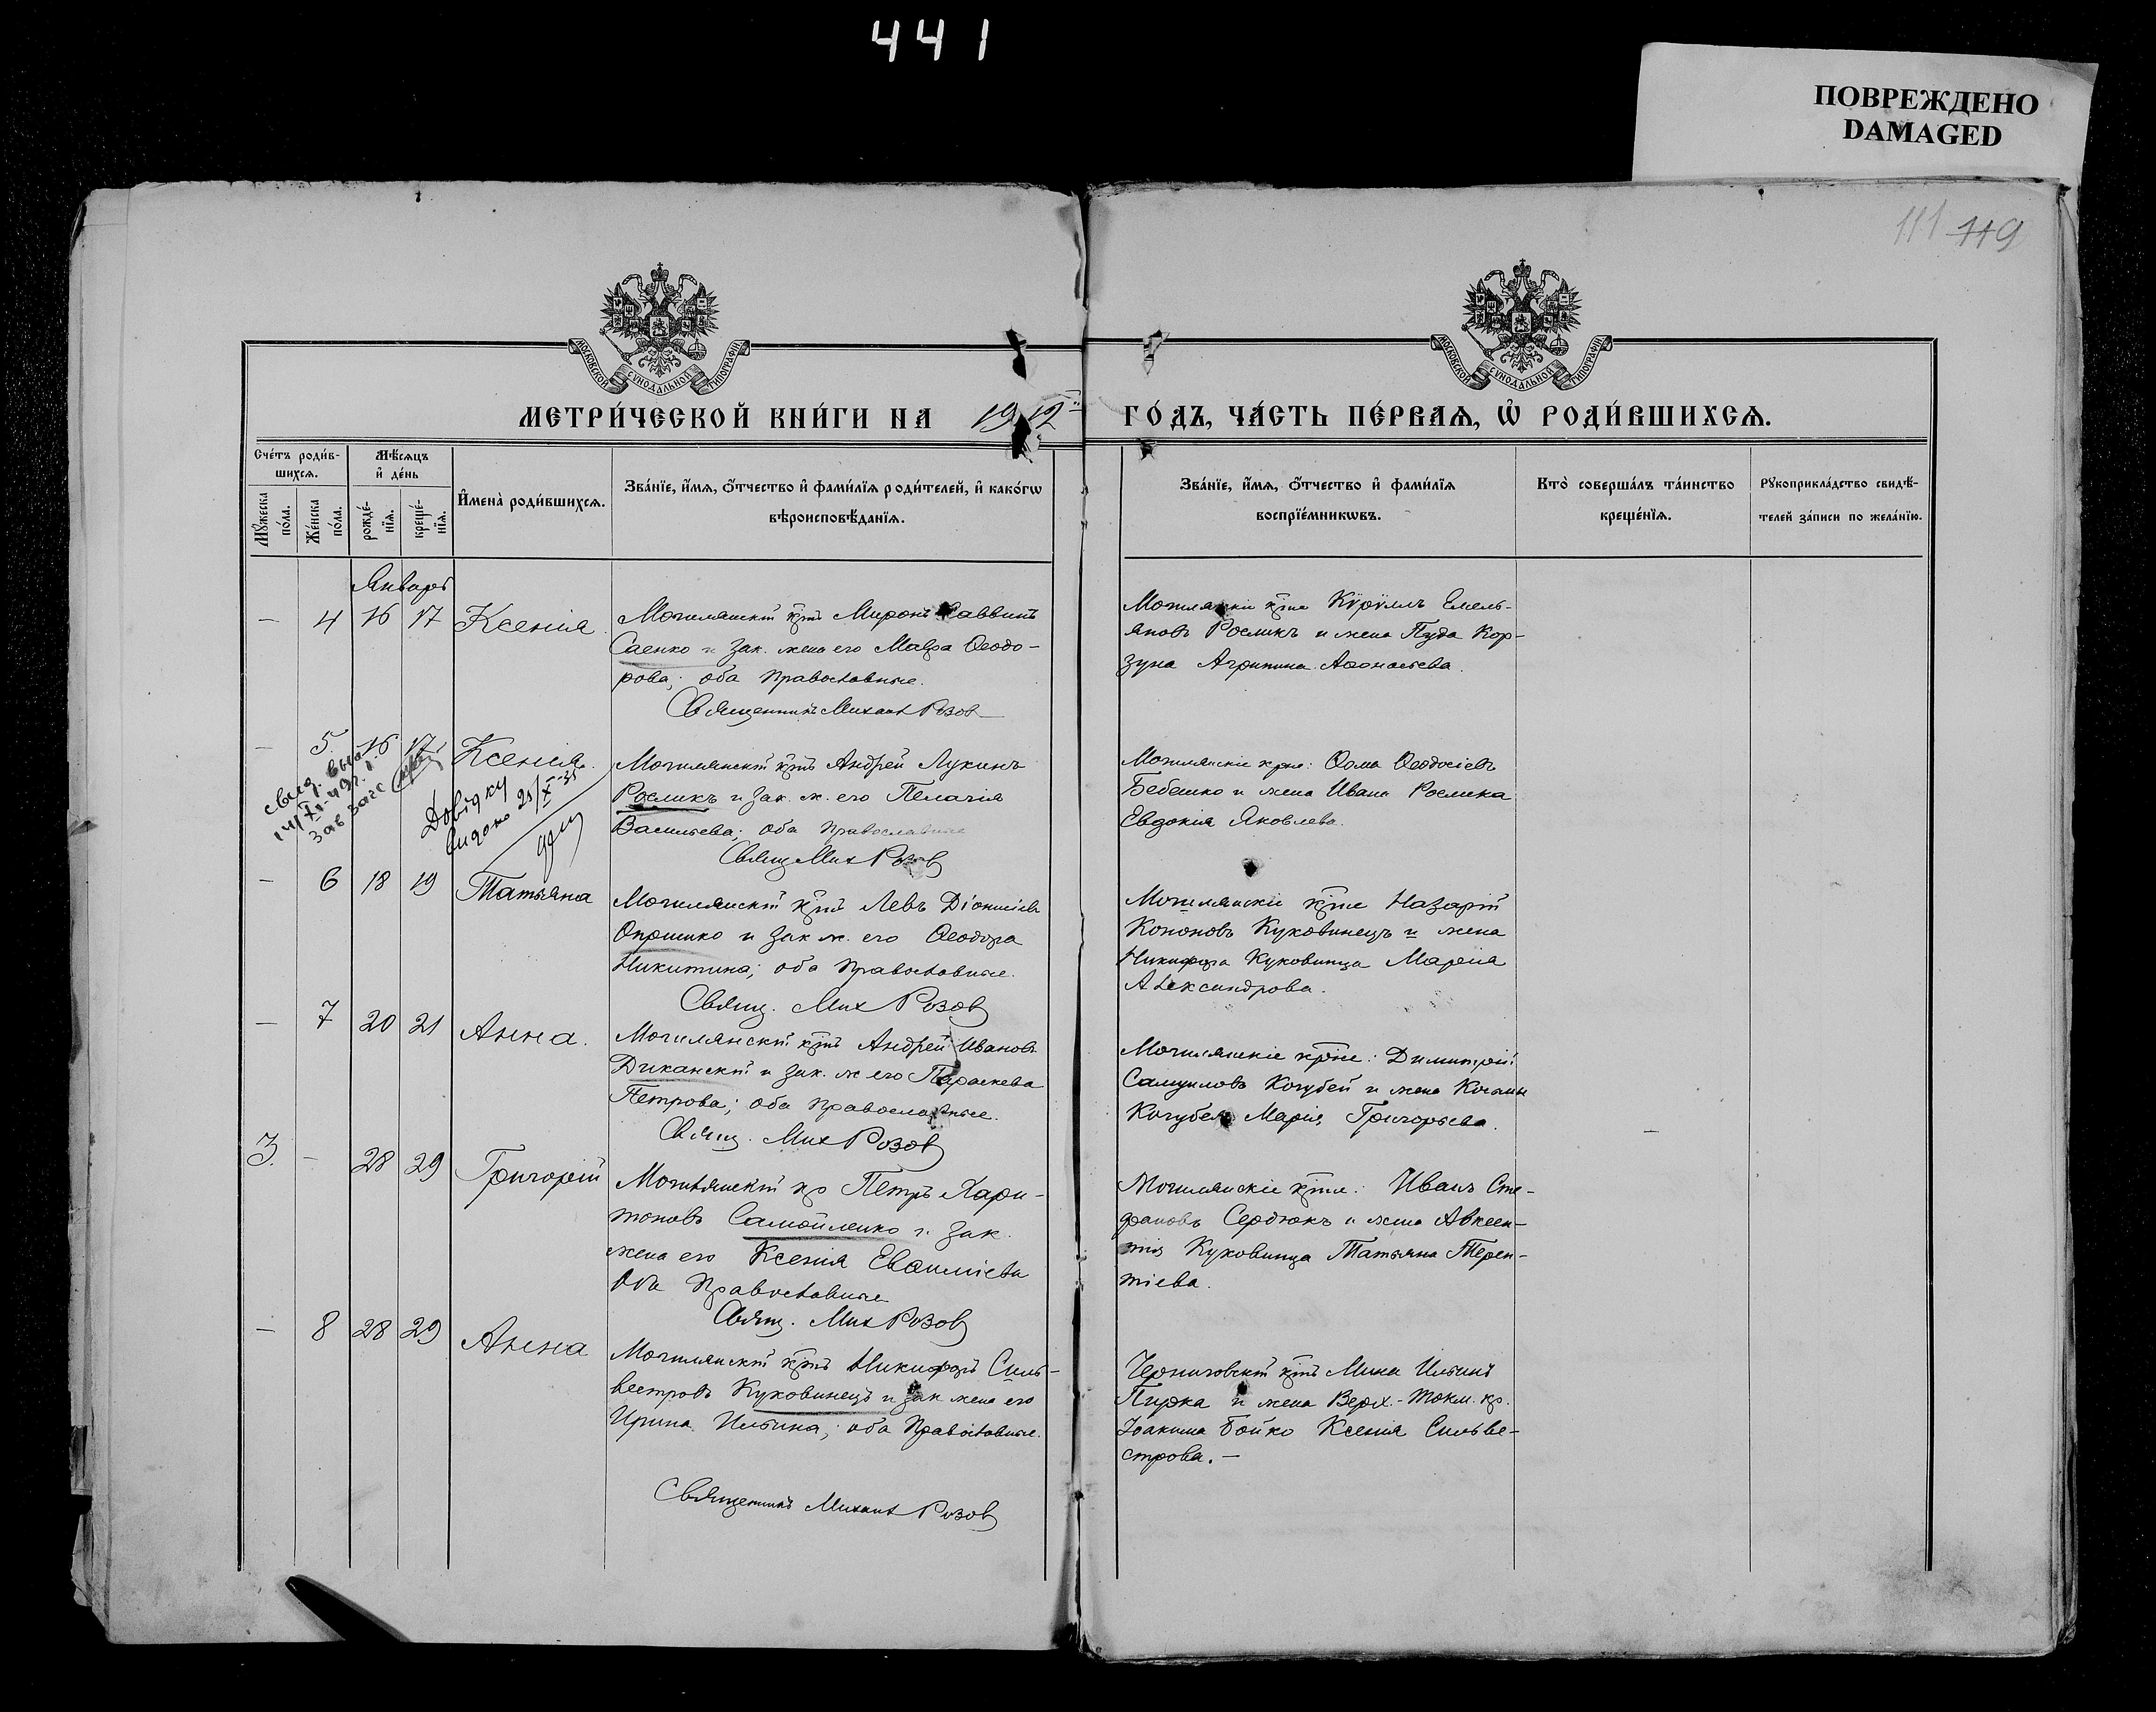 441
ПОВРЕЖДЕНО
DAMAGED
111 119
МОСКОВСКОЙ СѴНОДАЛЬНОЙ ТИПОГРАФІИ
МОСКОВСКОЙ СѴНОДАЛЬНОЙ ТИПОГРАФІИ
МЕТРИ́ЧЕСКОЙ КНИ́ГИ НА 1912й ГО́ДЪ, ЧА́СТЬ ПЕ́РВАѦ, Ѡ РОДИ́ВШИХСѦ.
Сче́тъ роди́в-
шихсѧ.
Мꙋ́жеска по́ла.
Же́нска по́ла.
Мѣ́сѧцъ
и҆ де́нь
рожде́-
нїѧ.
креще́-
нїѧ.
И҆мена̀ роди́вшихсѧ.
Зва́нїе, и҆́мѧ, о҆́тчество и҆ фами́лїѧ роди́телей, и҆ како́гѡ
вѣроисповѣ́данїѧ.
Зва́нїе, и҆́мѧ, о҆́тчество и҆ фами́лїѧ
воспрїе́мникѡвъ.
Кто̀ соверша́лъ та́инство
креще́нїѧ.
Рꙋкоприкла́дство свидѣ́-
телей за́писи по жела́нїю.
Январь
— 4 16 17 Ксенія.
Могилянскій кр͠нъ Миронъ Саввинъ
Саенко и зак. жена его Мавра Ѳеодо-
рова; оба православные.
Священникъ Михаил Розов
Могилянскіе кр͠не Кѵрѵллъ Емель-
яновъ Рослик и жена Пуда Кор-
зуна Агрипина Аѳонасьева.
— 5. 16 17 Ксенія.
свид. выд.
зав загс
Довідку
видано 21/X-35
Могилянскій кр͠нъ Андрей Лукинъ
Росликъ и зак. ж. его Пелагія
Васильева; оба православные
Свящ Мих Розов
Могилянскіе кр͠не: Ѳома Ѳеодосіевъ
Бебешко и жена Ивана Рослика
Евдокія Яковлева.
— 6 18 19 Татьяна
Могилянскій кр͠нъ Левъ Діонисіевъ
Опришко и зак ж. его Ѳеодора
Никитина; оба православные.
Свящ. Мих Розов
Могилянскіе кр͠не Назарій
Кононовъ Куковинецъ и жена
Никифора Куковинца Марія
Александрова.
— 7 20 21 Анна.
Могилянскій кр͠нъ Андрей Ивановъ
Диканскій и зак. ж его Параскева
Петрова; оба православные.
Свящ. Мих Розов
Могилянскіе кр͠не: Димитрій
Самуиловъ Кочубей и жена Косьмы
Кочубея Марія Григорьева.
3. — 28 29 Григорій
Могилянскій кр Петръ Хари-
тоновъ Самойленко и зак.
жена его Ксенія Евѳиміева
Оба православные
Свящ. Мих Розов
Могилянскіе кр͠не: Иванъ Сте-
фановъ Сердюкъ и жена Авксен-
тія Куковинца Татьяна Терен-
тіева.
— 8 28 29 Анна
Могилянскій кр͠нъ Никифоръ Силь-
вестровъ Куковинецъ и зак жена его
Ирина Ильина; оба православные.
Священникъ Михаил Розов
Черниговскій кр͠нъ Мина Ильинъ
и жена Верх.-Токм. кр.
Іоакима Бойко Ксенія Сильве-
строва. —